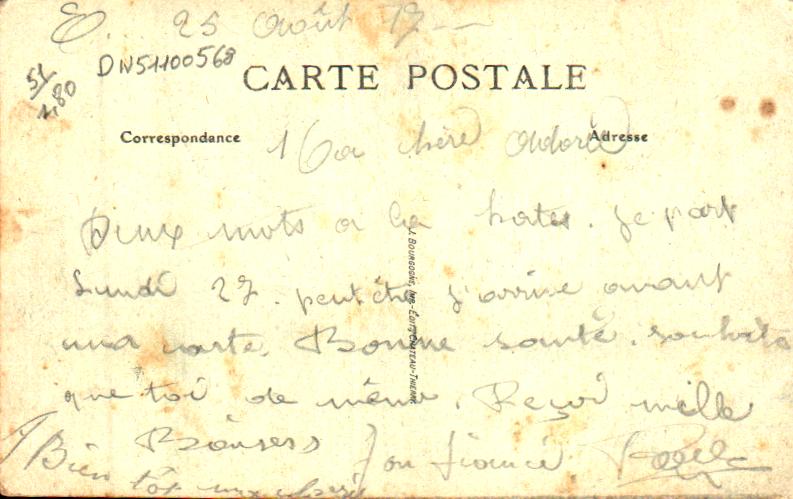 25 Août 17
DN51100568
51
1,80
CARTE POSTALE
Correspondance
Adresse
Ma chère Adorée
Deux mots a la hate. Je part
Lundi 27. peutêtre j'arrive avant
ma carte. Bonne santé. souhaite
que toi de même. Reçoi mille
Baisers Ton fiancé.
Bien tôt ma chérie
J. BOURGOGNE, IMP.-ÉDIT., CHATEAU-THIERRY